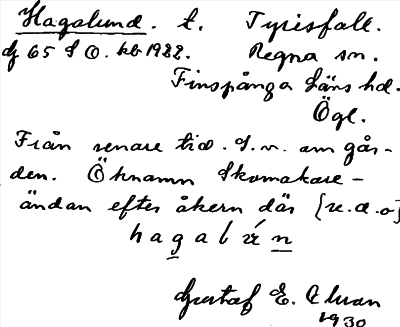 Hagalund. t. Tyrisfall.
dj 65 S O. kb 1922. Regna sn.
Finspånga läns hd.
Ögl.
Från senare tid. S.v. om går-
den. Öknamn Skomakare-
ändan efter åkern där
hagal
Gustaf E. Alvan
1930